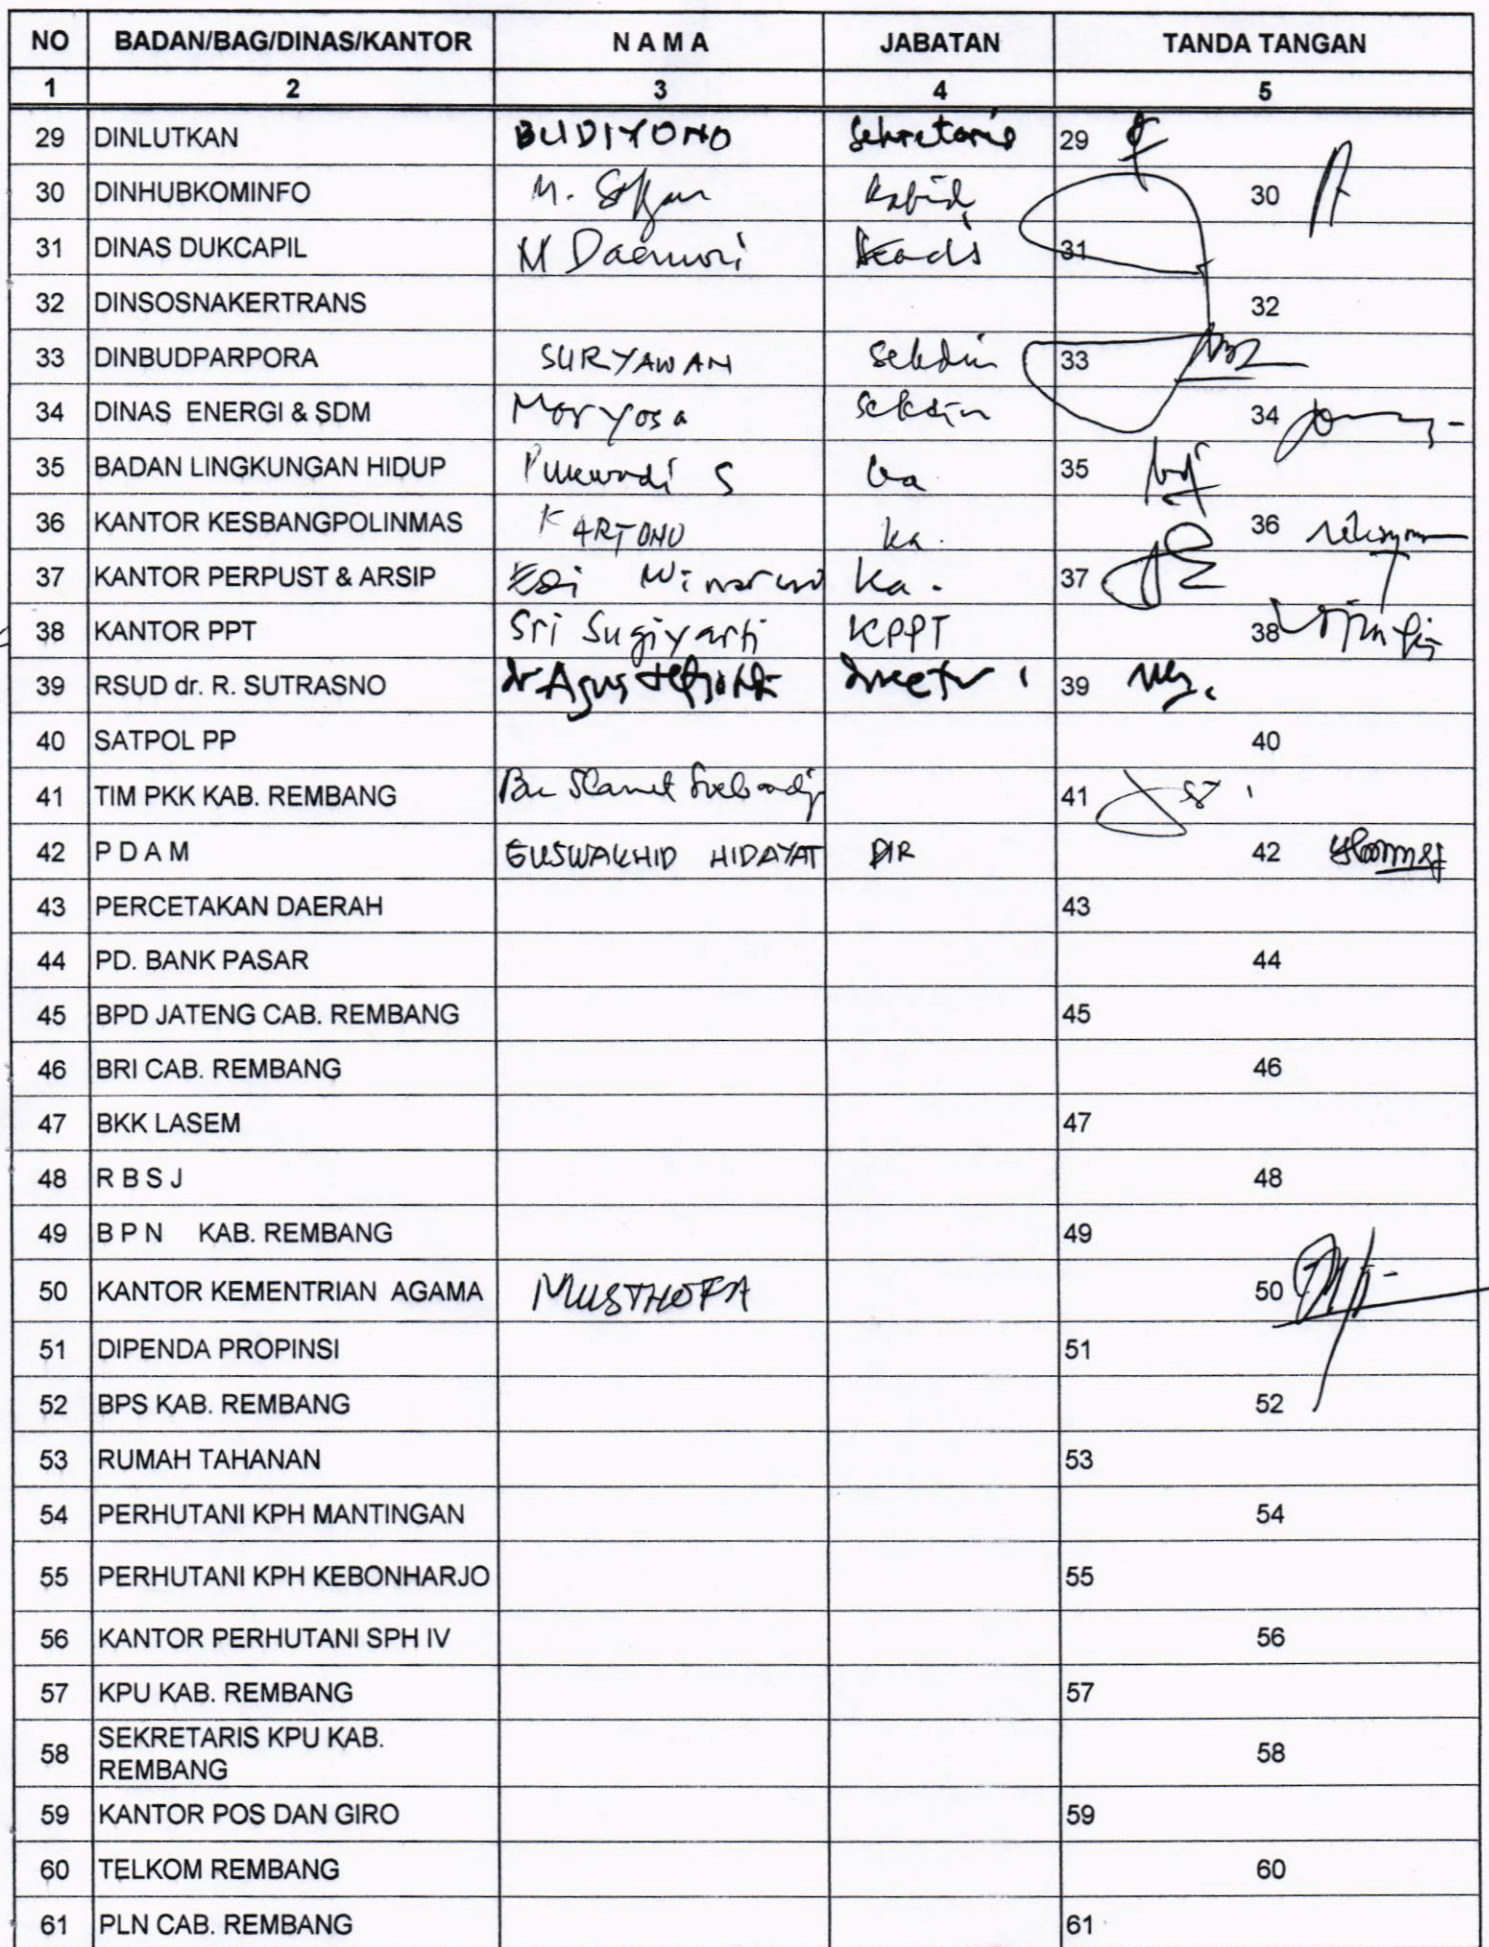 NO BADAN/BAG/DINAS/KANTOR N A M A JABATAN TANDA TANGAN
1 2 3 4 5
29 DINLUTKAN BUDIYONO Sekretaris 29
30 DINHUBKOMINFO M. Kabid 30
31 DINAS DUKCAPIL M Daenuri 31
32 DINSOSNAKERTRANS 32
33 DINBUDPARPORA SURYAWAN Sekdin 33
34 DINAS ENERGI & SDM Maryosa Sekdin 34
35 BADAN LINGKUNGAN HIDUP S 35
36 KANTOR KESBANGPOLINMAS KARTONO ka. 36
37 KANTOR PERPUST & ARSIP Edi Winarno Ka. 37
38 KANTOR PPT Sri Sugiyarti KPPT 38
39 RSUD dr. R. SUTRASNO dr Agus 39
40 SATPOL PP 40
41 TIM PKK KAB. REMBANG Bu Slamet 41
42 P D A M HIDAYAT DIR 42
43 PERCETAKAN DAERAH 43
44 PD. BANK PASAR 44
45 BPD JATENG CAB. REMBANG 45
46 BRI CAB. REMBANG 46
47 BKK LASEM 47
48 R B S J 48
49 B P N KAB. REMBANG 49
50 KANTOR KEMENTRIAN AGAMA MUSTHOFA 50
51 DIPENDA PROPINSI 51
52 BPS KAB. REMBANG 52
53 RUMAH TAHANAN 53
54 PERHUTANI KPH MANTINGAN 54
55 PERHUTANI KPH KEBONHARJO 55
56 KANTOR PERHUTANI SPH IV 56
57 KPU KAB. REMBANG 57
58 SEKRETARIS KPU KAB. 58
REMBANG
59 KANTOR POS DAN GIRO 59
60 TELKOM REMBANG 60
61 PLN CAB. REMBANG 61